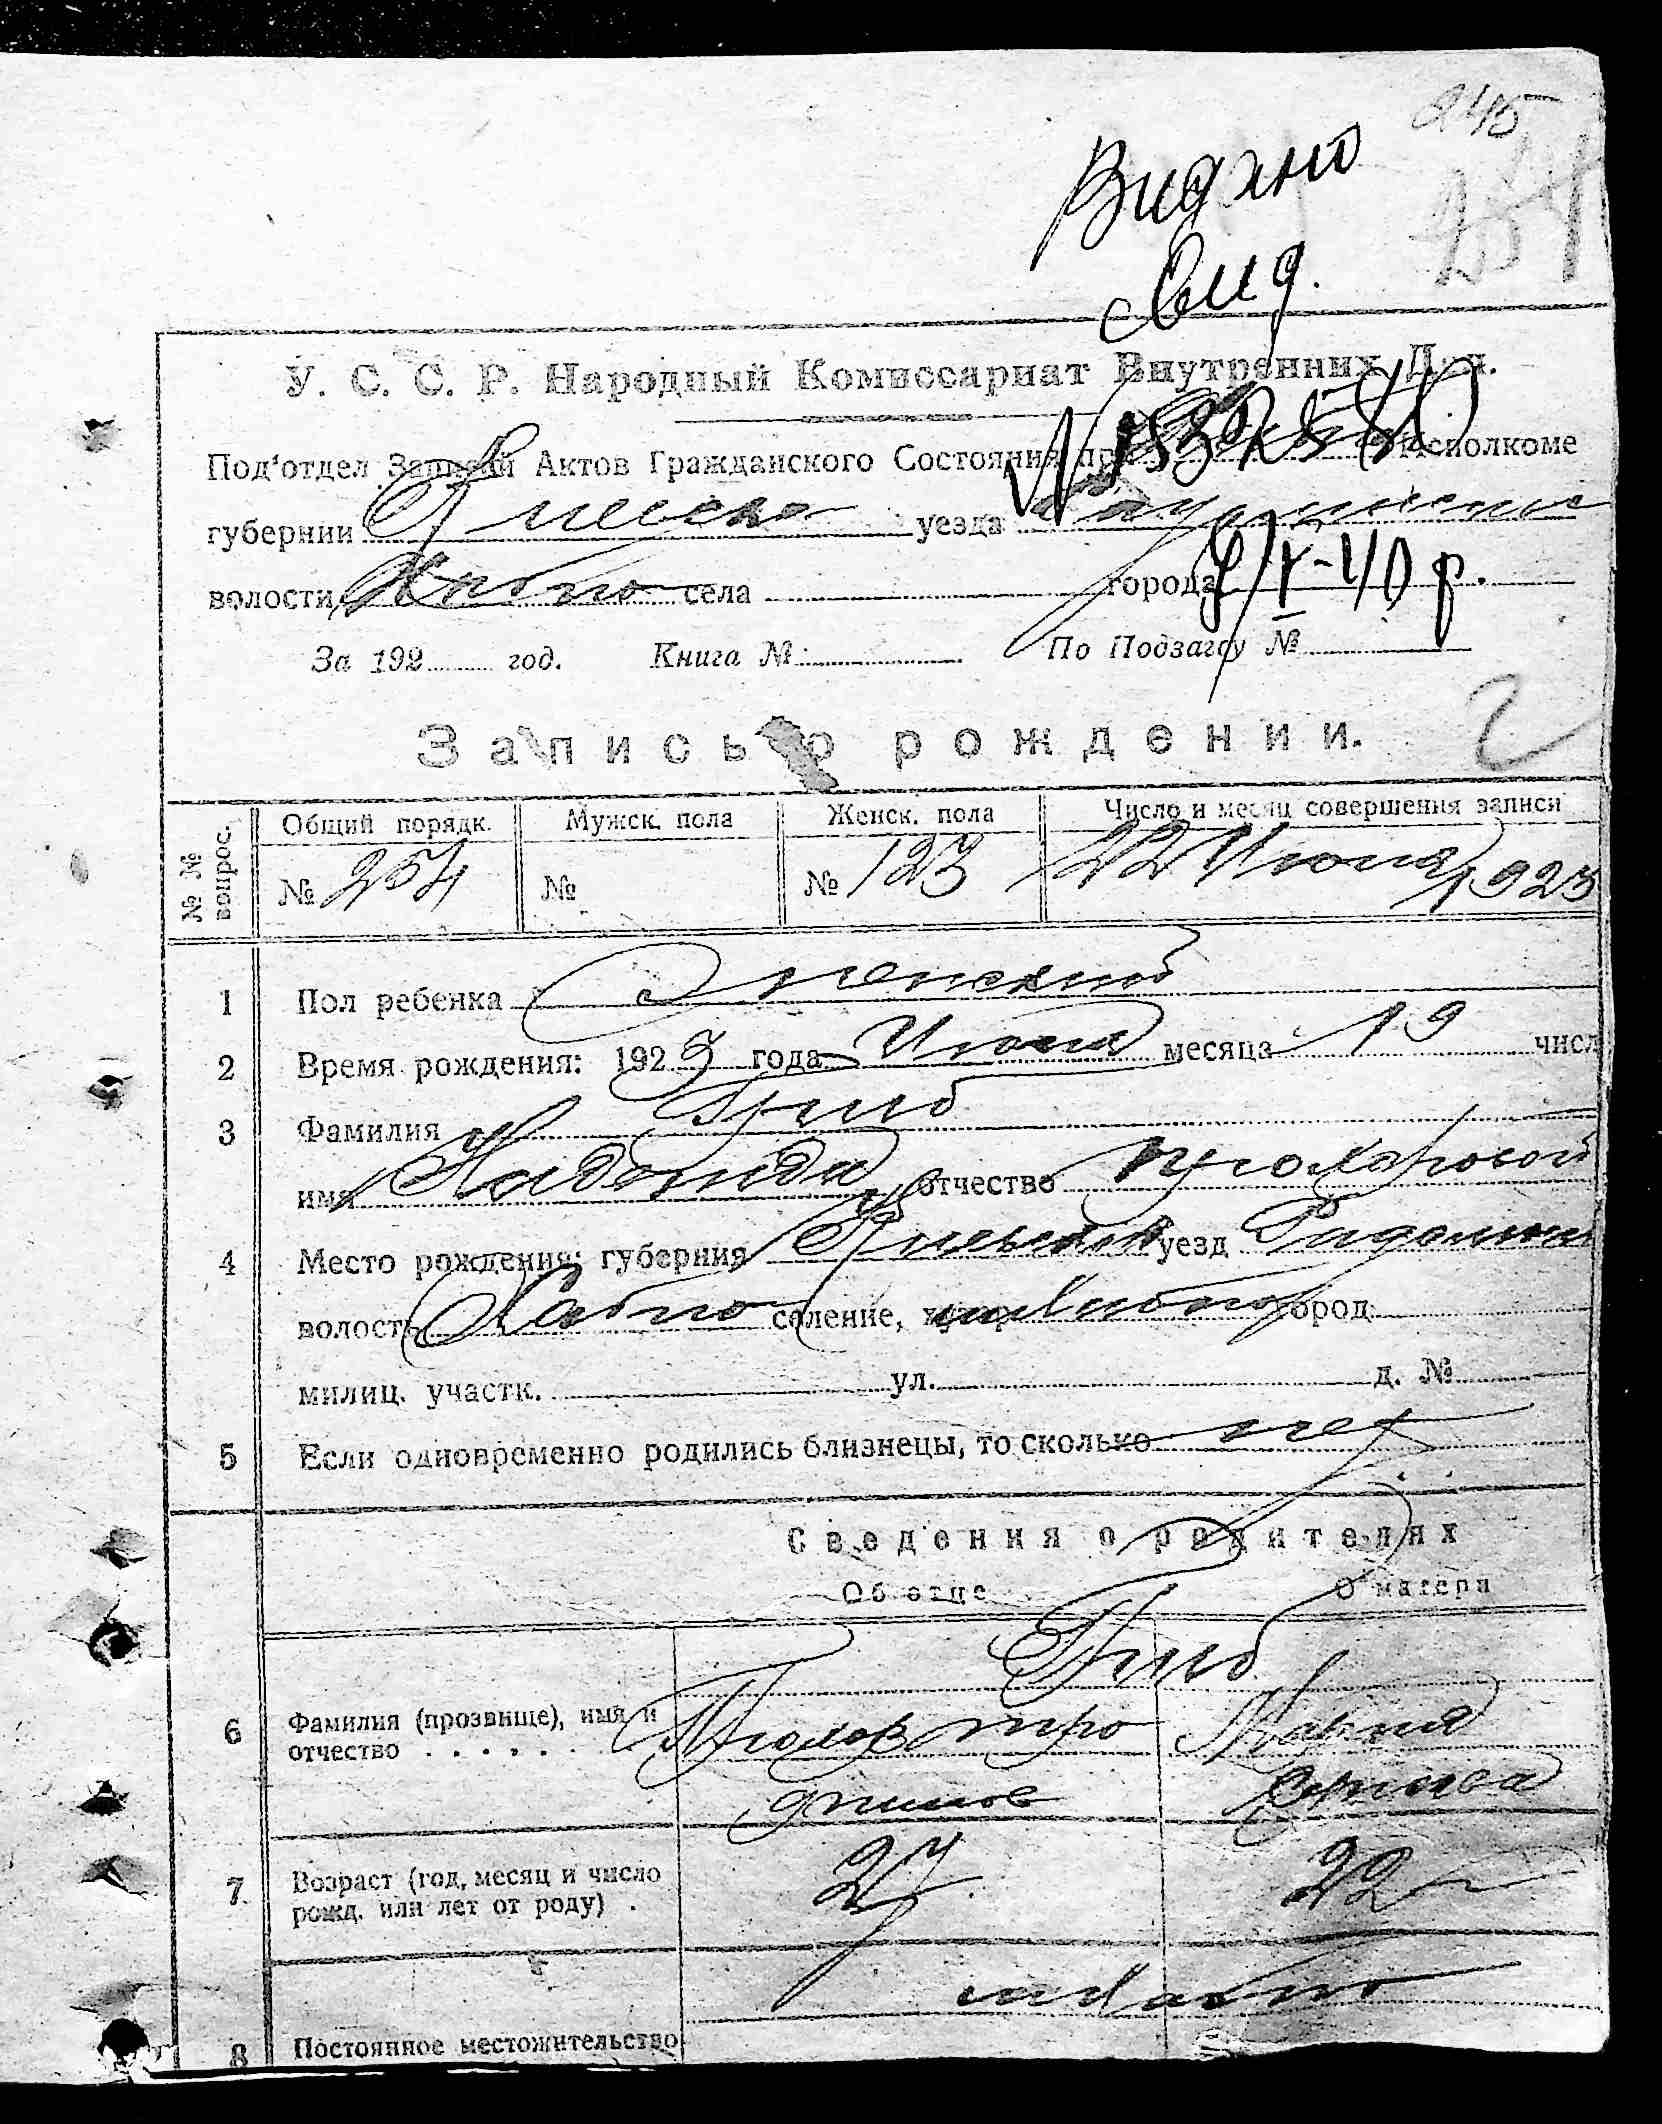 245
254
Видано
Свид.
У. С. С. Р. Народный Комиссариат Внутренних Дел.
Под'отдел Записи Актов Гражданского Состояния при Исполкоме
губернии уезда
волости Хабно села города
9/V-40 р.
За 192 год. Книга № По Подзагсу №
2
Запись о рождении.
№ № вопрос. Общий порядк. Мужск. пола Женск. пола Число и месяц совершения записи
№ 254 № № 123 22 Июня 1923
1 Пол ребенка женский
2 Время рождения: 1923 года Июня месяца 19 числ
3 Фамилия Гриб
имя Надежда отчество Прохоровой
4 Место рождения: губерния Киевской уезд
волость Хабно селение, город
милиц. участк. ул. д. №
5 Если одновременно родились близнецы, то сколько нет
Сведения о родителях
Об отце О матери
Гриб
6 Фамилия (прозвище), имя и отчество Прохор Мария
7 Возраст (год, месяц и число рожд. или лет от роду) 27 22
м Хабно
8 Постоянное местожительство